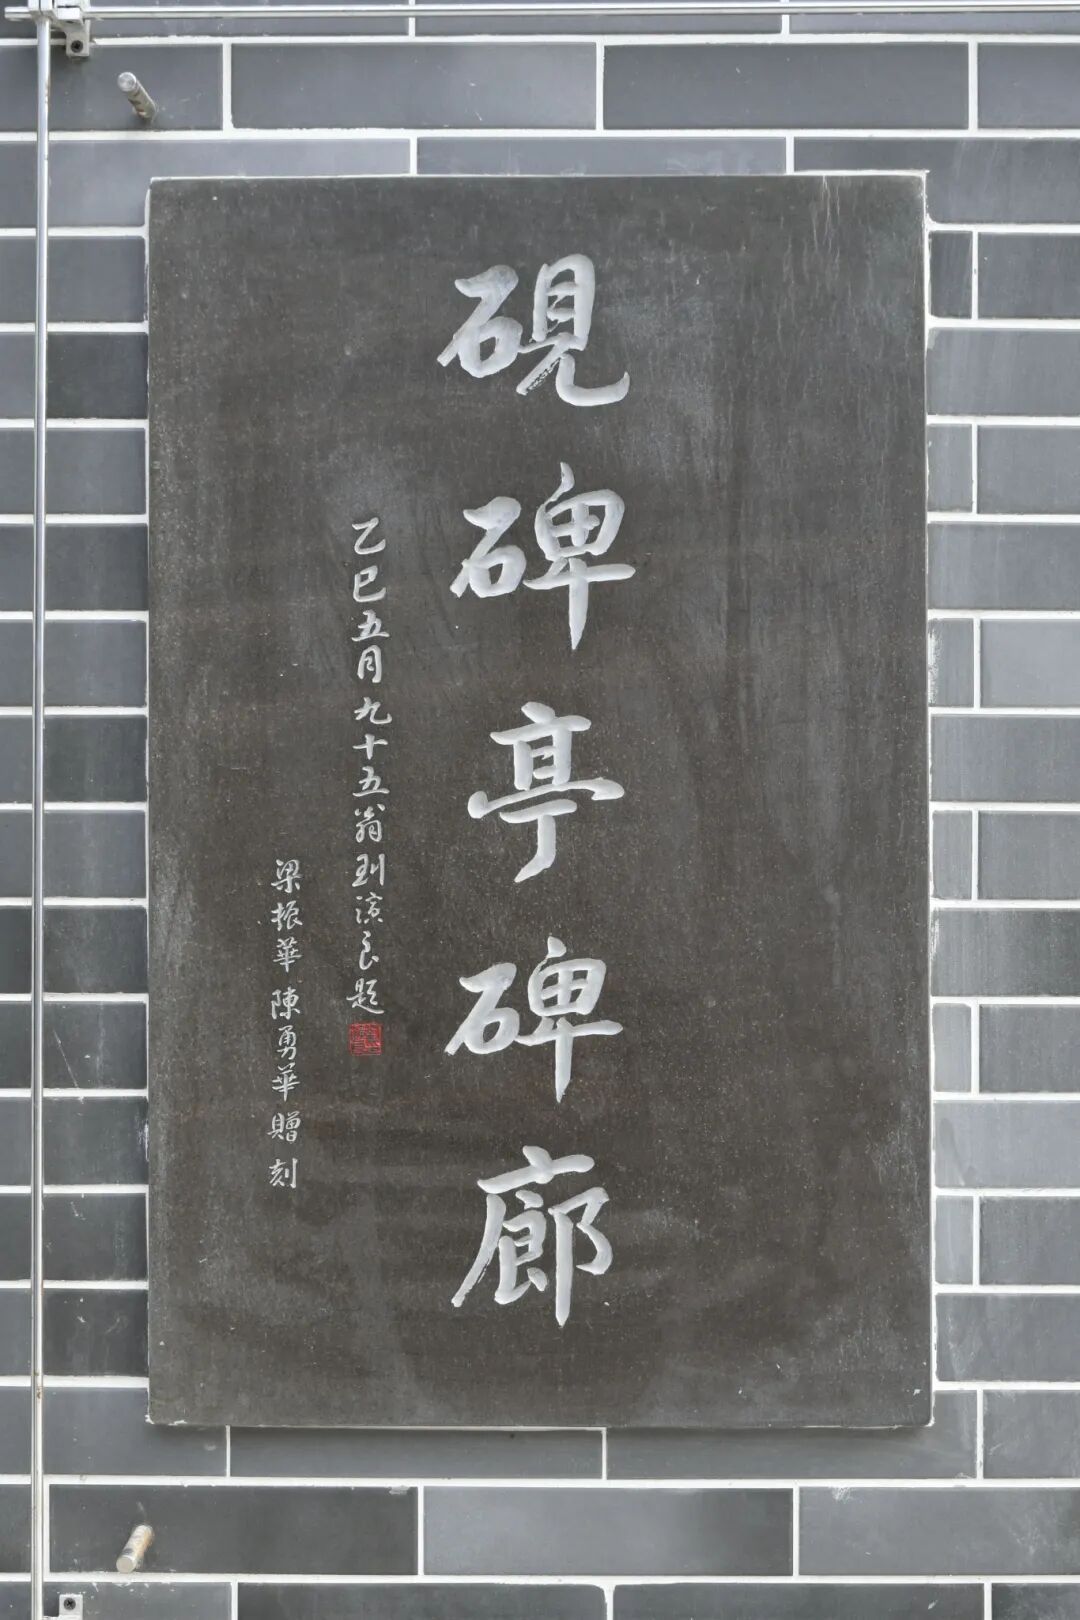 硯碑亭碑廊
乙巳五月九十五翁劉演良題
梁振華 陳勇華 贈刻